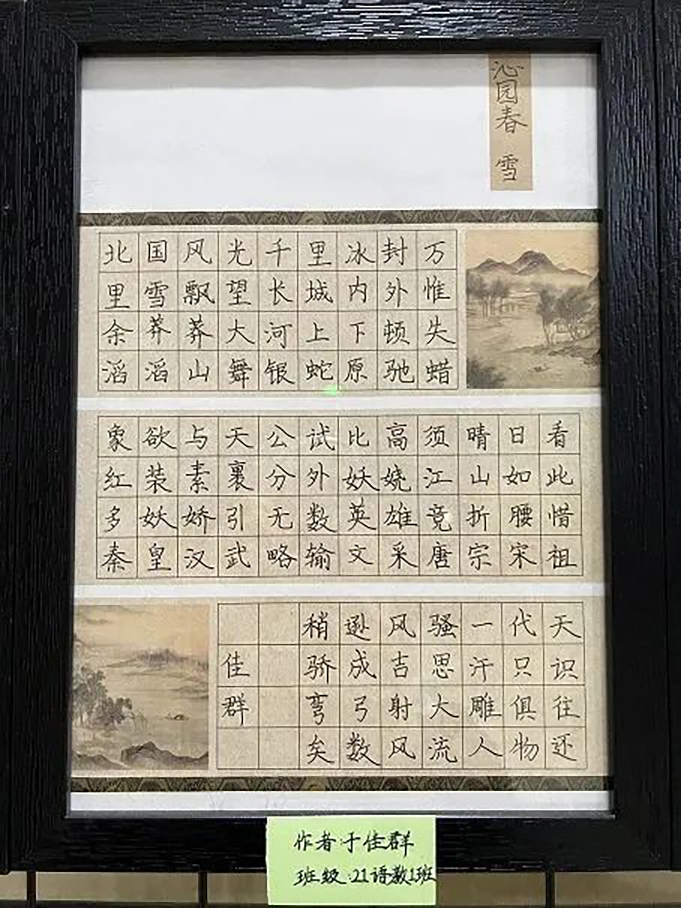 沁园春 雪
北国风光千里冰封万
里雪飘望长城内外惟
余莽莽大河上下顿失
滔滔山舞银蛇原驰蜡
象欲与天公试比高须晴日看
红装素裹分外妖娆江山如此
多妖娇引无数英雄竟折腰惜
秦皇汉武略输文采唐宗宋祖
稍逊风骚一代天
佳 骄成吉思汗只识
群 弯弓射大雕俱往
矣数风流人物还
作者:于佳群
班级:21语数1班